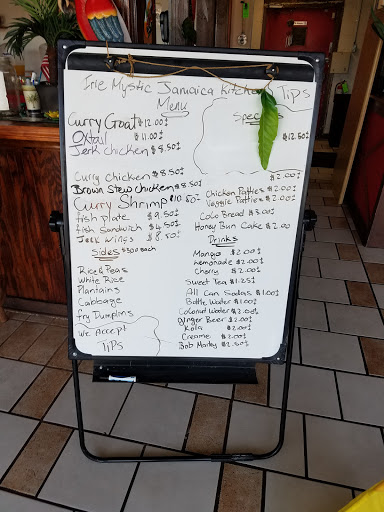 Irie Mystic Jamaica Kitchen Tips
Menu
Specials
Curry Goat $12.00
Oxtail $11.00
Jerk chicken $8.50
$12.50
Curry chicken $8.50
$2.00
Brown Stew chicken $8.50
Curry Shrimp $10.50
fish plate $9.50
fish sandwich $4.50
Jerk wings $8.50
Sides $3.00 each
Rice & Peas
White Rice
Plantains
Cabbage
fry Dumplins
We Accept
TIPS
Chicken Patties $2.00
Veggie Patties $2.00
Coco Bread $3.00
Honey Bun Cake $2.00
Drinks
Mango $2.00
Lemonade $2.00
Cherry $2.00
Sweet Tea $1.25
All Can Sodas $1.00
Bottle Water $1.00
Coconut Water $2.00
ginger Beer $2.00
Kola $2.00
Creame $2.00
Bob Marley $2.50